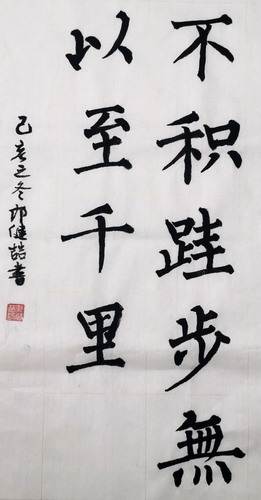 不积跬步無
以至千里
己亥之冬邝健喆書